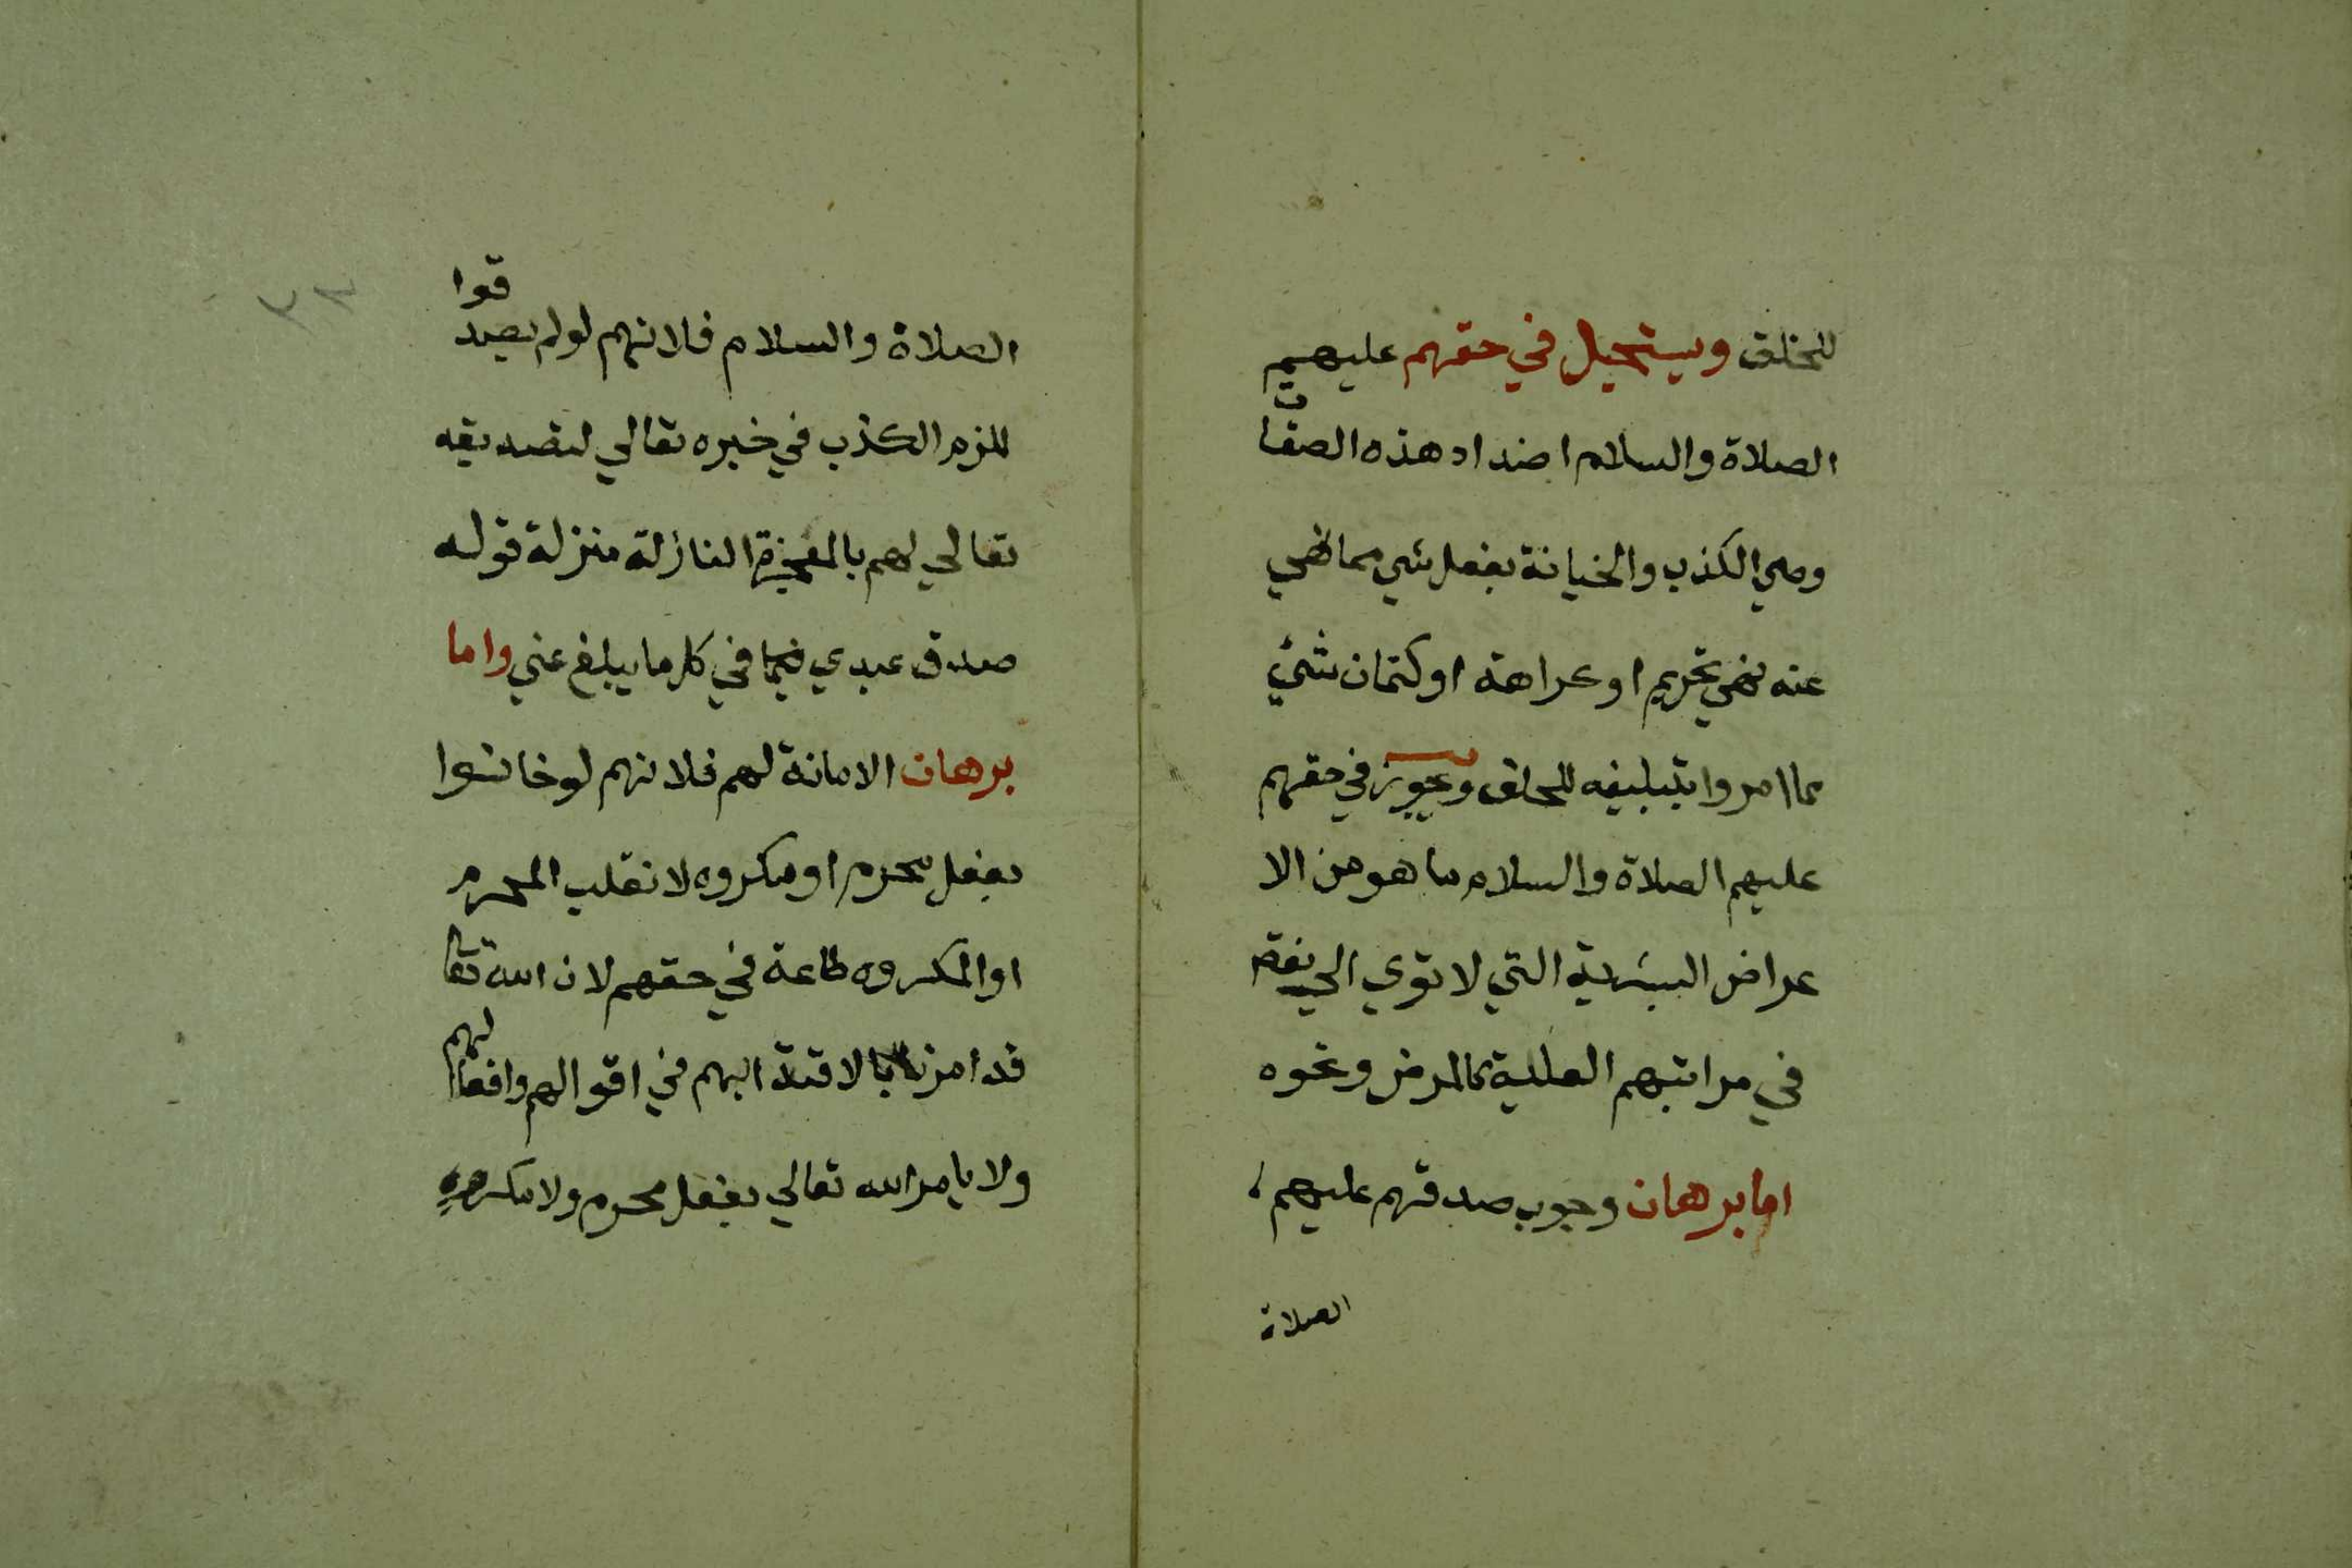 للخلق ويستحيل في حقهم عليهم
الصلاة والسلام اضداد هذه الصفات
وهي الكذب والخيانة بفعل شي مما نهي
عنه نهي تحريم او كراهة او كتمان شئي
مما امروا بتبليغه للخلق ويجوز في حقهم
عليهم الصلاة والسلام ما هو من الا
عراض البشرية التي لا تودي الي نقص
في مراتبهم العلية كالمرض ونحوه
اما برهان وجوب صدقهم عليهم
الصلاة
٣٢
الصلاة والسلام فلانهم لو لم يصدقوا
للزم الكذب في خبره تعالي لتصديقه
تعالي لهم بالمعجزة النازلة منزلة قوله
صدق عبدي في كل ما يبلغ عني واما
برهان الامانة لهم فلانهم لو خانوا
بفعل محرم او مكروه لانقلب المحرم
او المكروه طاعة في حقهم لان الله تعا
قد امرنا بالاقتدا بهم في اقوالهم وافعالهم
ولا يامر الله تعالي بفعل محرم ولا مكروه